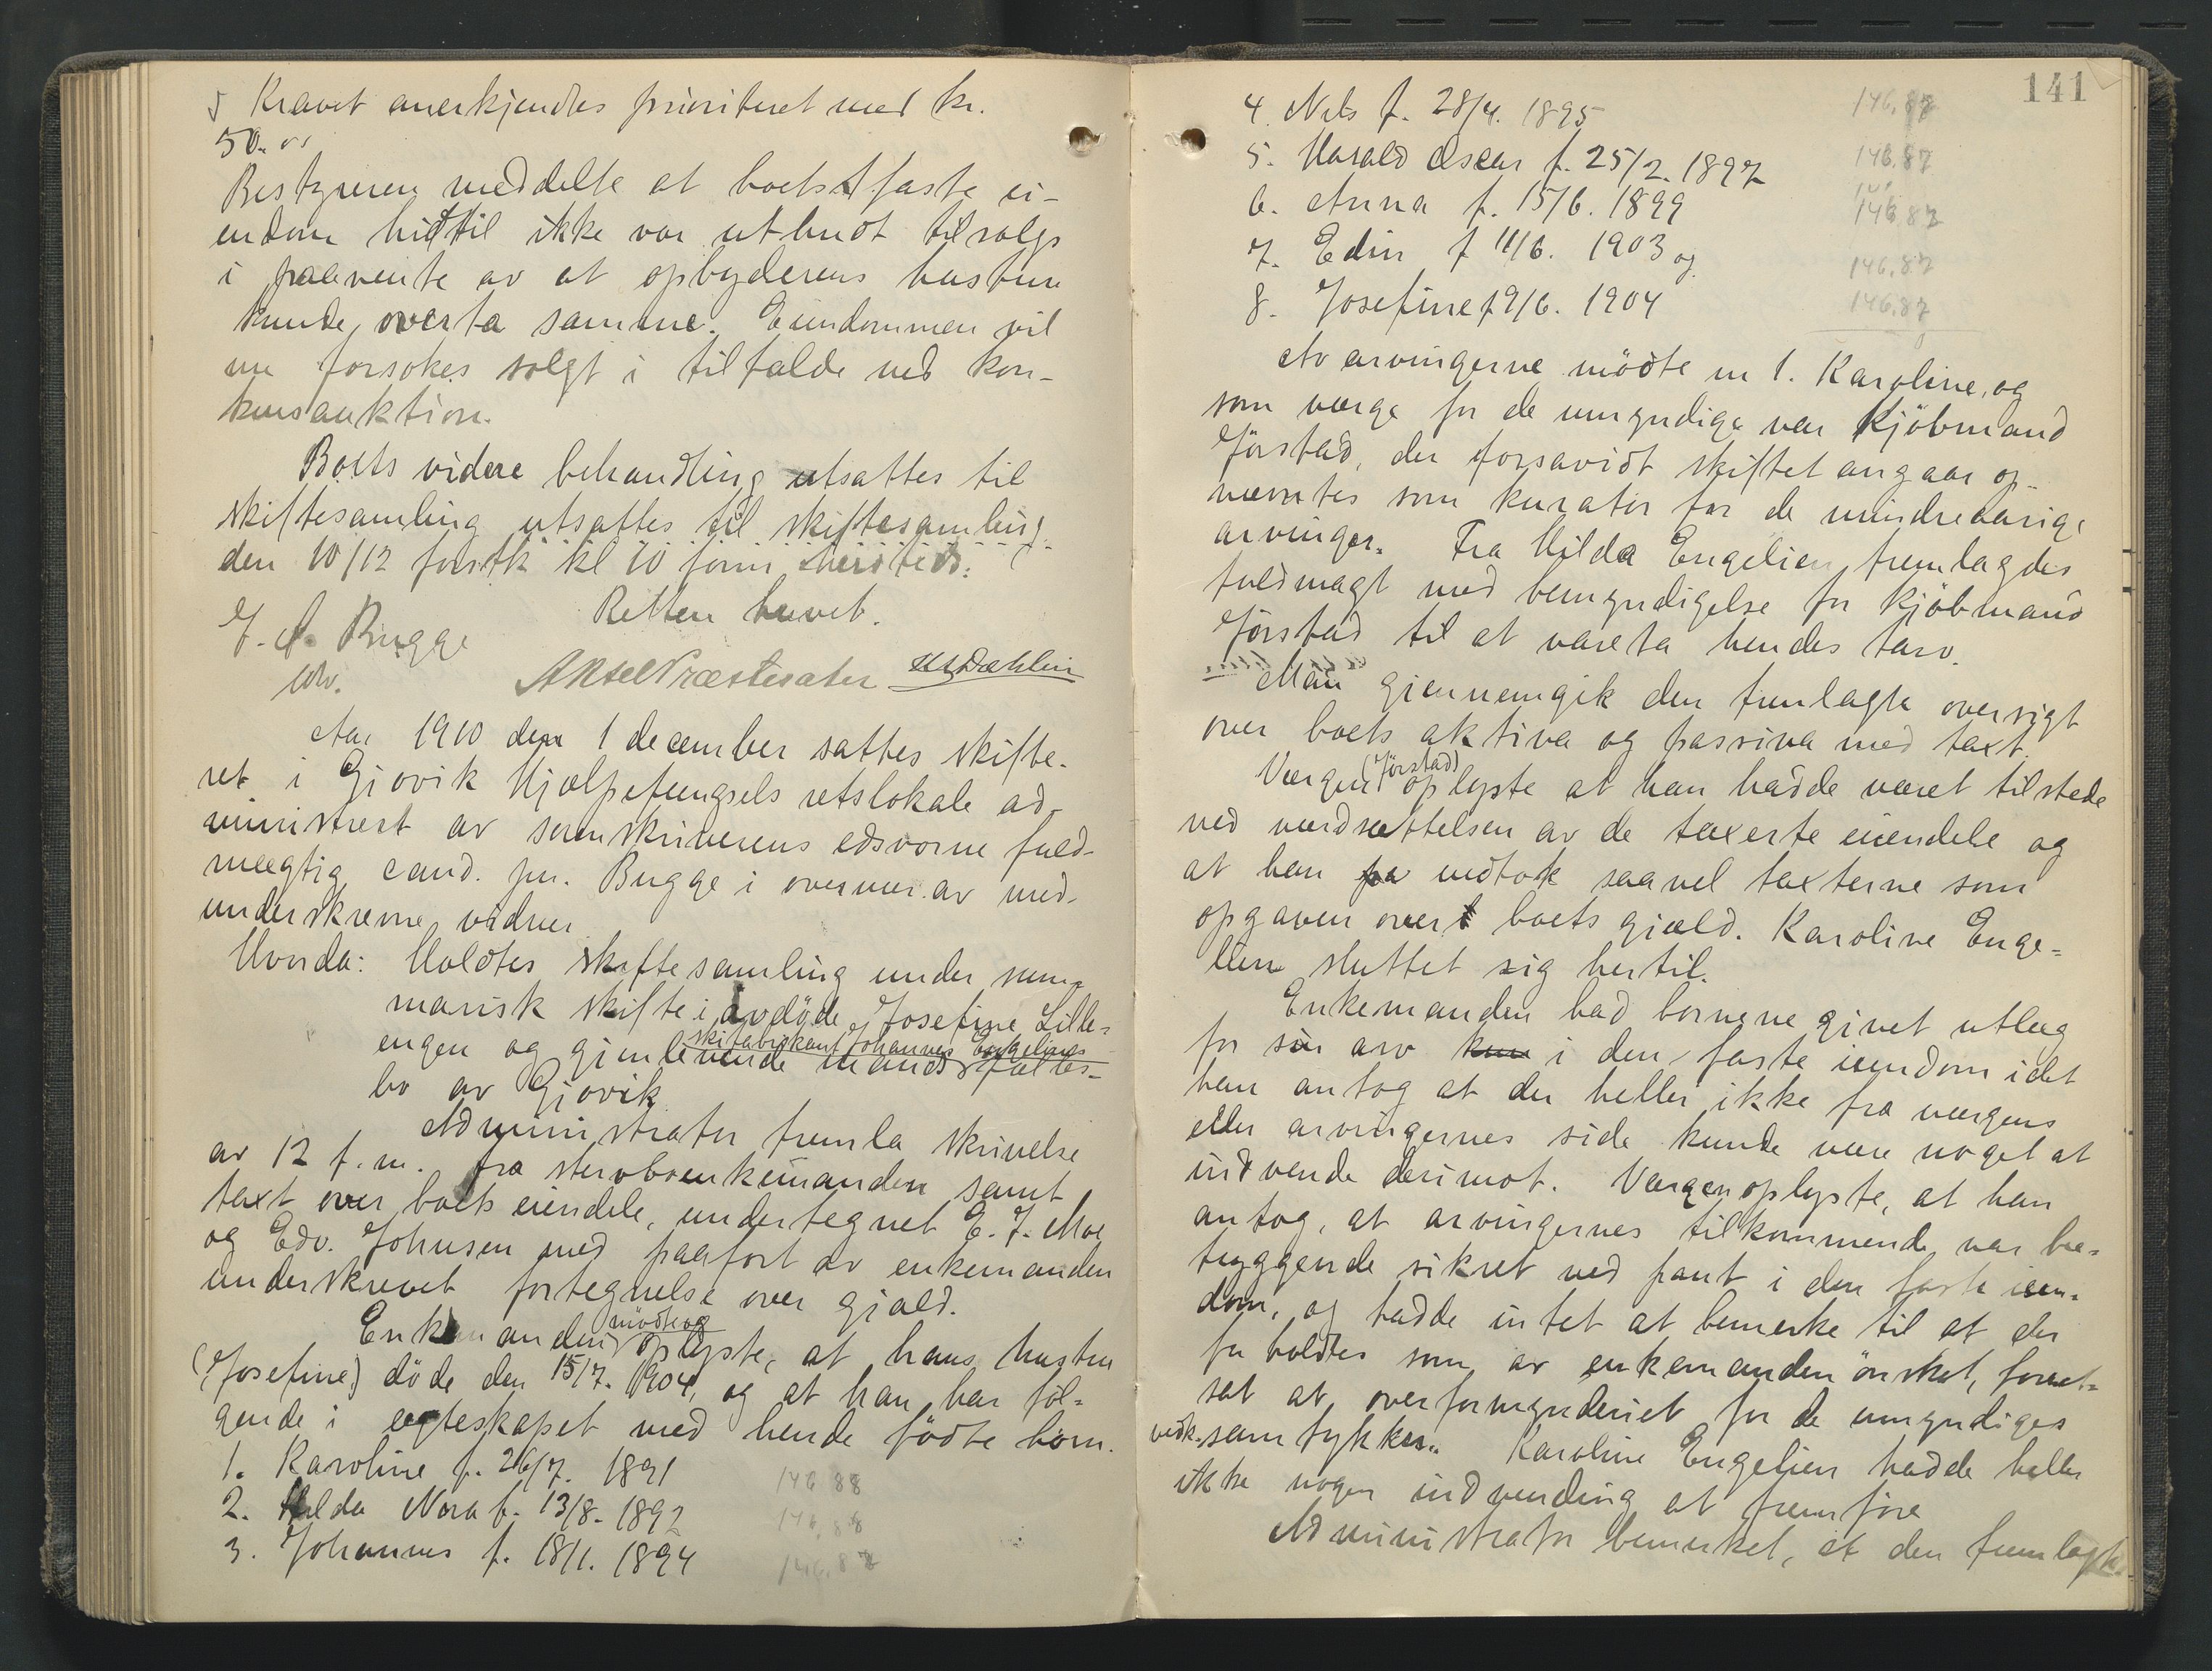 5 Kravet anerkjendtes prioriteret med kr.
50.00
Bestyreren meddelte at boets faste ei-
endom hittil ikke var utbudt tilsalgs
i paavente av at opbyderens hustru
kunde overta samme. Eiendommen vil
nu forsøkes solgt i tilfælde ved kon-
kursauktion.
Boets videre behandling utsattes til
skiftesamling utsattes til skiftesamling
den 10/12 førstk kl 10 form hersteds.
Retten hævet.
J. A. Bugge
const.
Aksel Præstesæter
Aar 1910 den 1 december sattes skifte-
ret i Gjøvik Hjælpefængsels retslokale ad-
ministrert av sorenskriverens edsvorne fuld-
mægtig cand. jur. Bugge i overvær av med-
underskrevne vidner
Hvorda: Holdtes skiftesamling under sum-
marisk skifte i avdøde Josefine Lille-
engen og gjenlevende mands skifabrikant Johannes Engeliens fælles-
bo av Gjøvik
Administrator fremla skrivelse
av 12 f. m. fra stervboenkemanden samt
taxt over boets eiendele, undertegnet E. J. Moe
og Edv. Johnsen med paaført av enkemanden
underskrevet fortegnelse over gjæld.
Enkemanden mødte og oplyste, at hans hustru
(Josefine) døde den 15/7. 1904, og at han har føl-
gende i egteskapet med hende fødte børn.
1. Karoline f. 26/7. 1891 146 88
2. Hilda Nora f. 13/8. 1892 146,88
3. Johannes f. 18/1. 1894 146.87
141
4. Nils f. 28/4. 1895 146,87
5. Harald Oscar f. 25/2. 1897 146.87
6. Anna f. 15/6. 1899 146.87
7. Edin f 11/6. 1903 og 146.87
8. Josefine f 9/6. 1904 146.87
Av arvingerne mødte nr 1. Karoline, og
som verge for de umyndige var Kjøbmand
Jørstad, der forsavidt skiftet angaar op-
nævntes som kurator for de mindreaarige
arvinger. Fra Hilda Engelien fremlagdes
fuldmagt med bemyndigelse for Kjøbmand
Jørstad til at vareta hendes tarv.
Man gjennemgik den fremlagte oversigt
over boets aktiva og passiva med taxt.
Vergen (Jørstad) oplyste at han hadde været tilstede
ved værdsættelsen av de taxerte eiendele og
at han vedtok saavel taxterne som
opgaven over boets gjæld. Karoline Enge-
lien sluttet sig hertil.
Enkemanden bad børnene givet utlæg
for sin arv i den faste eiendom idet
han antog at der heller ikke fra vergens
eller arvingernes side kunde være noget at
indvende derimot. Vergen oplyste, at han
antog, at arvingernes tilkommende var be-
tryggende sikret ved pant i den faste eien-
dom, og hadde intet at bemerke til at der
forholdtes som av enkemanden ønsket, forut-
sat at overformynderiet for de umyndiges
vedk. samtykker. Karoline Engelien hadde heller
ikke nogen indvending at fremføre
Administrator bemerket, at den fremlagte